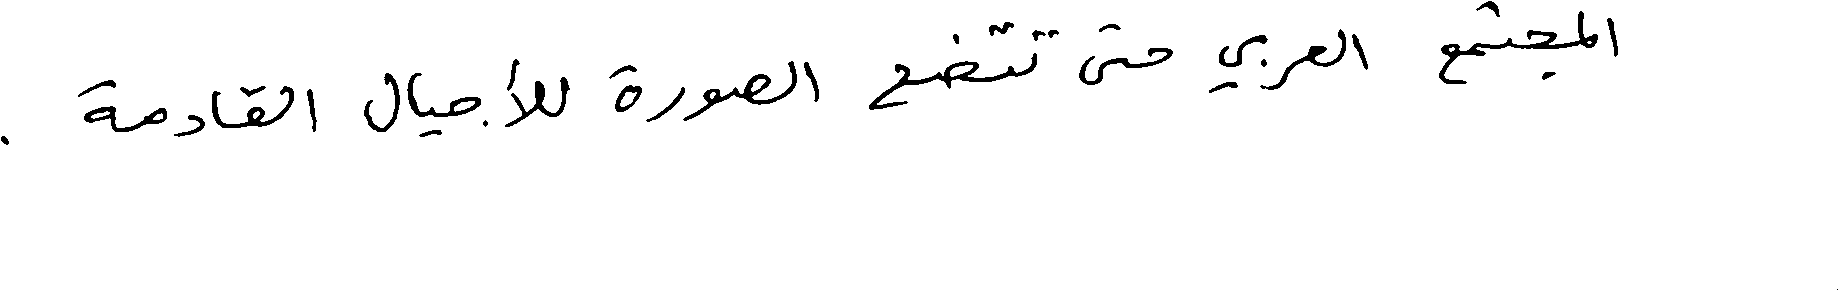 المجتمع العربي حتى تتضح الصورة للأجيال القادمة .